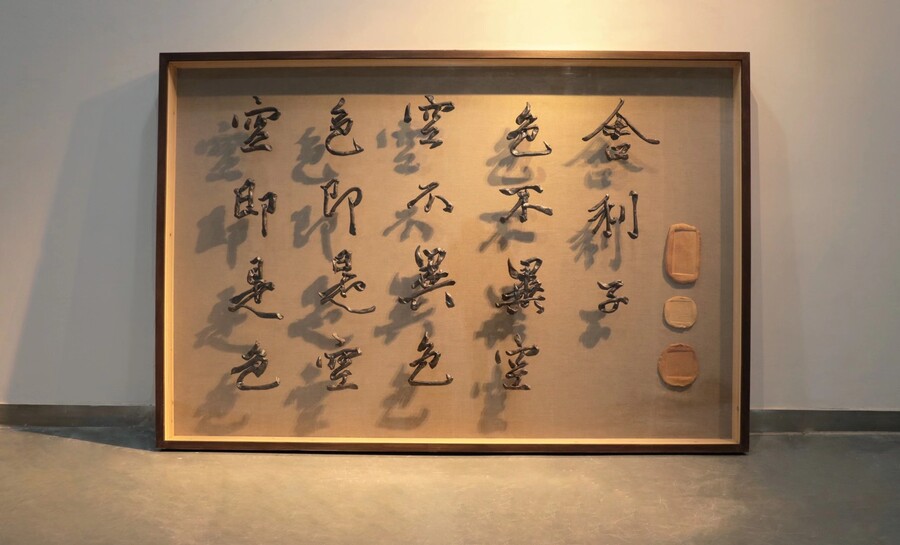 舎利子
色不異空
空不異色
色即是空
空即是色